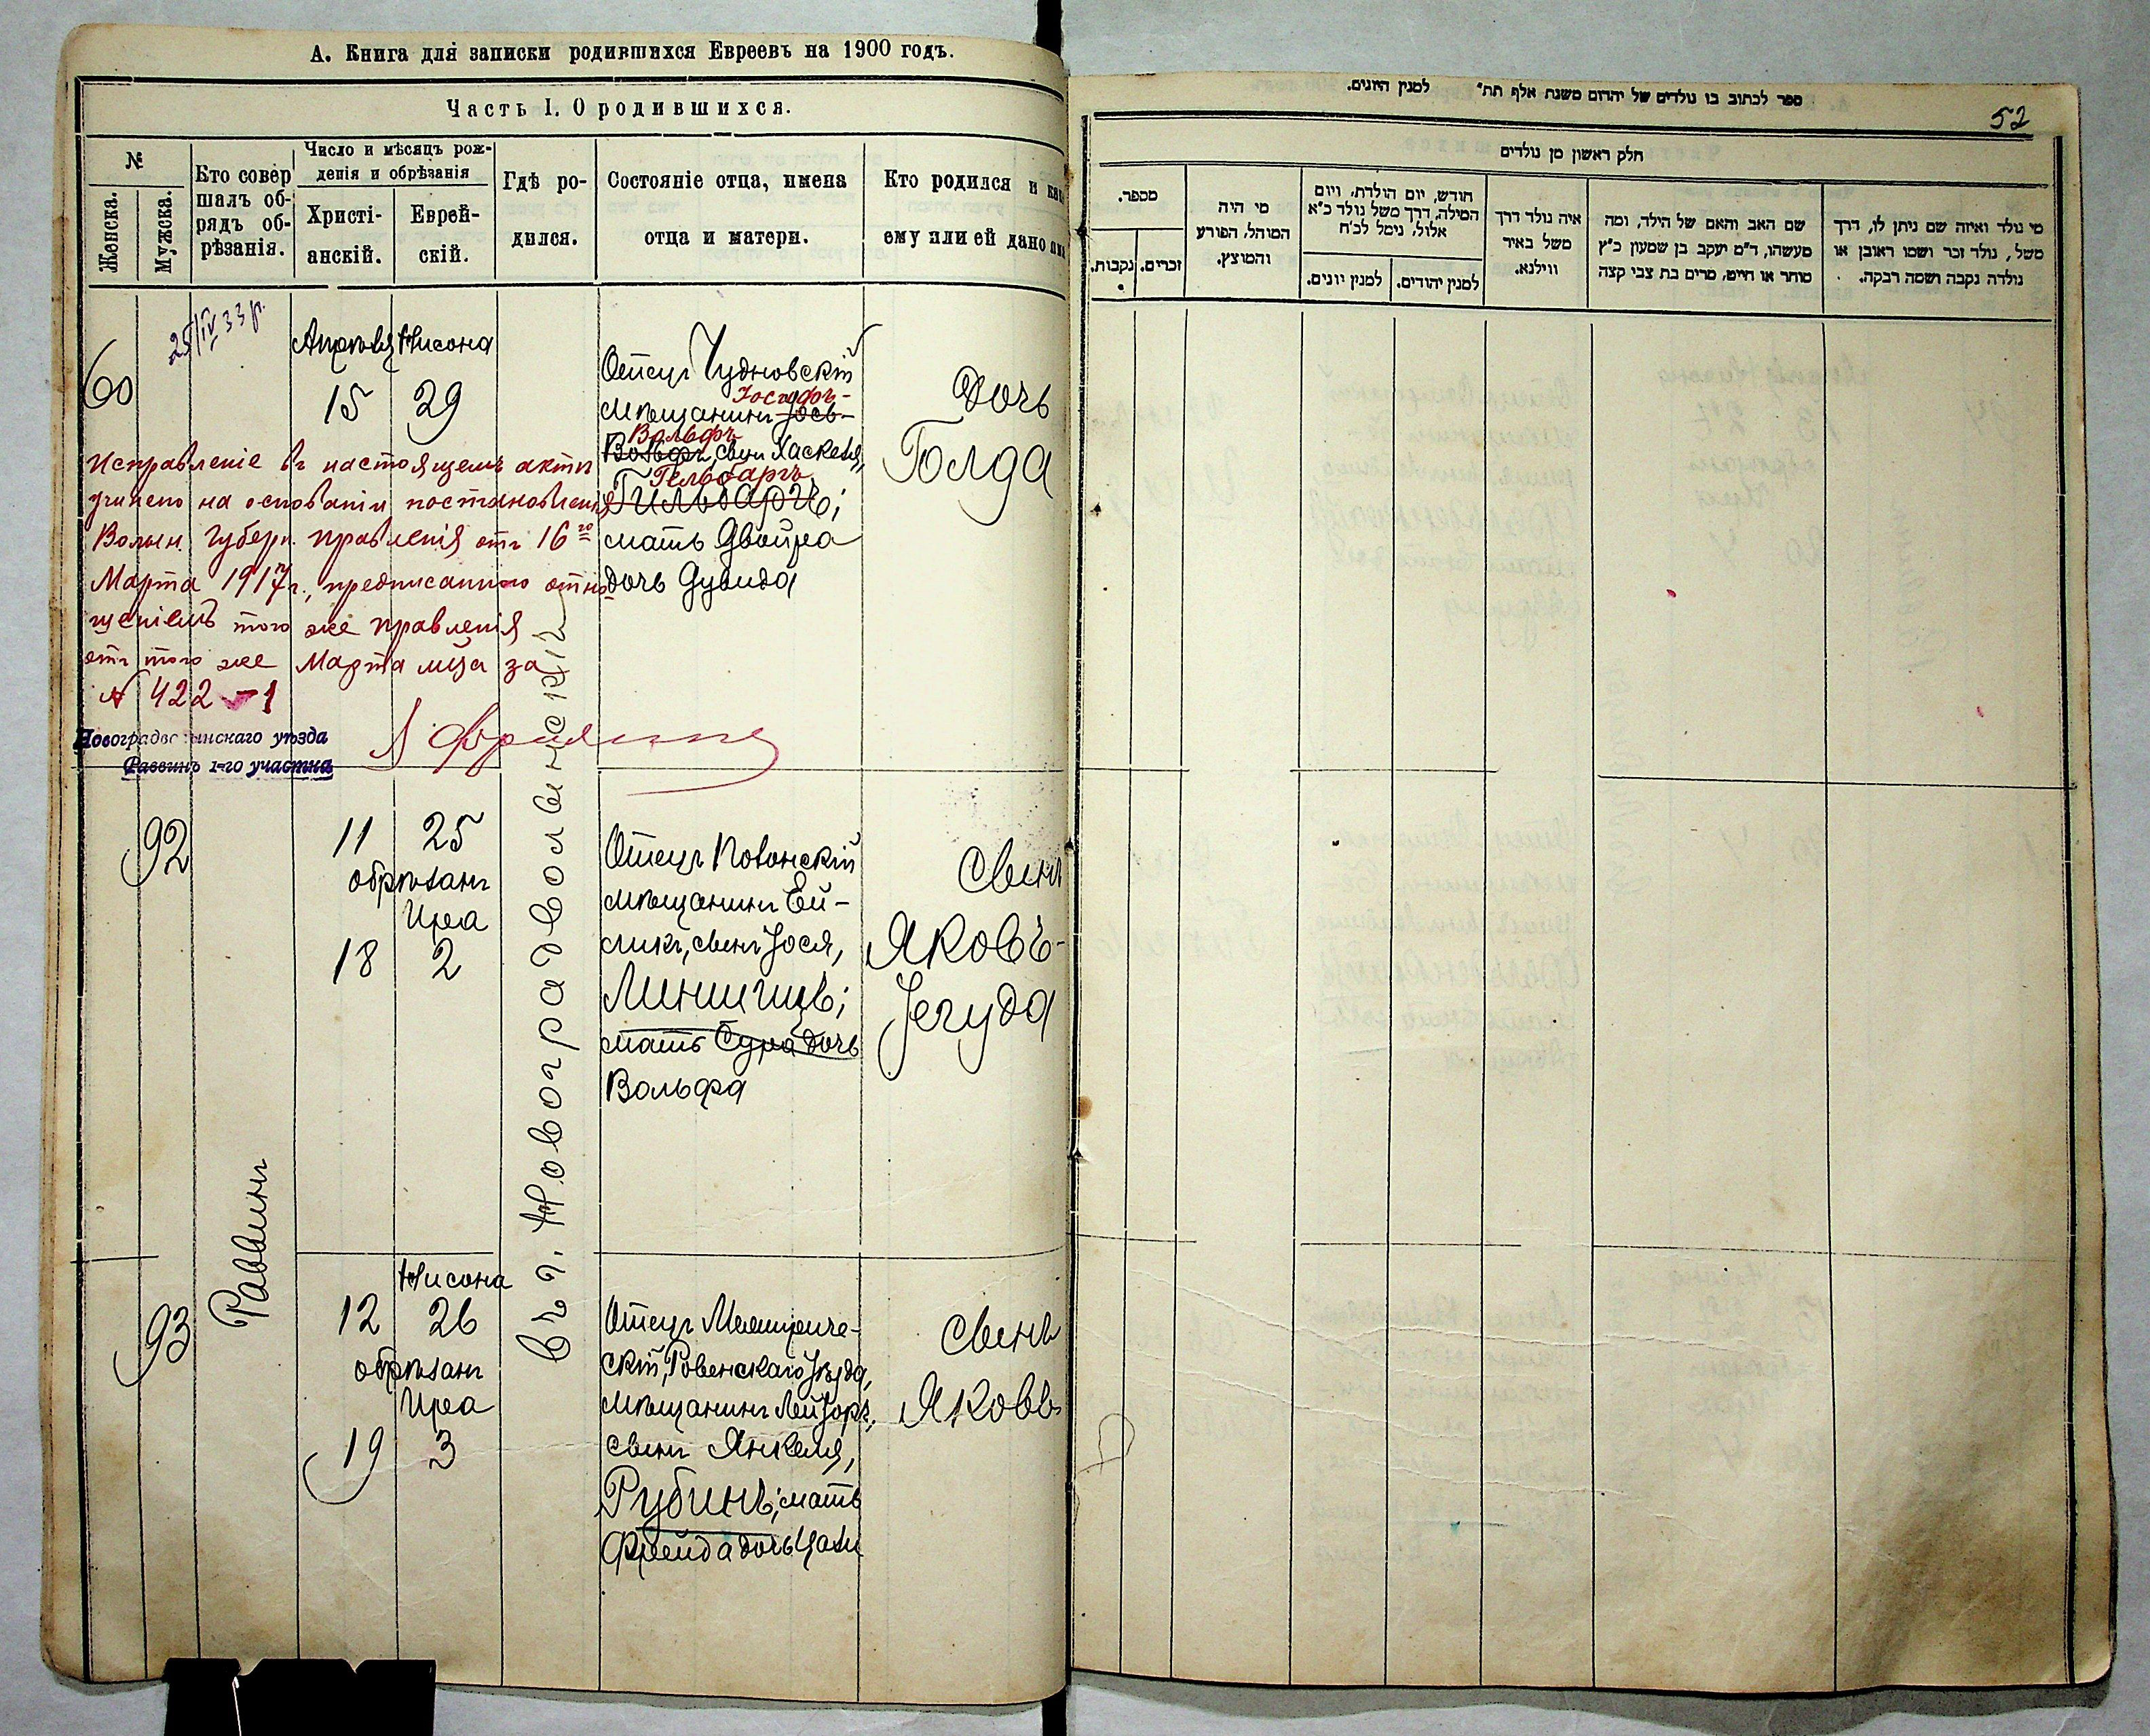 А. Книга для записки родившихся Евреевъ на 1900 годъ.
Часть I. О родившихся.
№
Женска.
Мужска.
Кто совер
шалъ об-
рядъ об-
рѣзанія.
Число и мѣсяцъ рож-
денія и обрѣзанія
Христі-
анскій.
Еврей-
скій.
Гдѣ ро-
дился.
Состояніе отца, имена
отца и матери.
Кто родился и как
ему или ей дано имя
60
25/IV 33 р.
Апрѣля Нисона
15 29
Отецъ Чудновскій
Іосифъ-
мѣщанинъ Іось-
Вольфъ
Вольфъ, сынъ Хаскеля,
Гельбаргъ
Гильбаргъ;
мать Двойра
дочь Дувида
Дочь
Голда
Исправленіе въ настоящемъ акте
учинено на основаніи постановленія
Волын. Губерн. Правленія отъ 16го
Марта 1917 г., предписанного отно
шеніемъ того же Правленія
отъ того же Марта мѣца за
№ 422-1
Новоградволынскаго уѣзда
Раввинъ 1-го участка
92
11 25
обрѣзанъ
Иреа
18 2
Отецъ
мѣщанинъ Ей-
сикъ, сынъ Іося,
мать Сура дочь
Вольфа
Сынъ
Яковъ-
Іегуда
Раввинъ
въ г. Новоградволынскій
93
Нисона
12 26
обрѣзанъ
Иреа
19 3
Отецъ
скій, Ровенскаго уѣзда,
мѣщанинъ Лейзоръ,
сынъ Янкеля,
Рубинъ; мать
Фрейда дочь
Сынъ
Яковъ
ספר לכתוב בו נולדים של יהדום משנת אלף תת" למנין היונים.
52
חלק ראשון מן נולדים
מספר.
זכרים.
נקבות.
מי היה
המוהל, הפורע
והמוצץ.
חודש, יום הולדת, ויום
המילה, דרך משל נולד כ"א
אלול, נימל לכ"ח
למנין יונים.
למנין יהודים.
איה נולד דרך
משל באיר
ווילנא.
שם האב והאם של הילד, ומה
מעשהו, ד"מ יעקב בן שמעון כ"ץ
סוחר או חייט, מרים בת צבי קצה
מי נולד ואיזה שם ניתן לו, דרך
משל, נולד זכר ושמו ראובן או
נולדה נקבה ושמה רבקה.